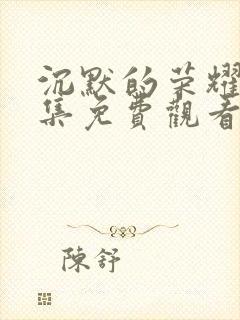 沉默的荣耀
集免費觀看
陳舒